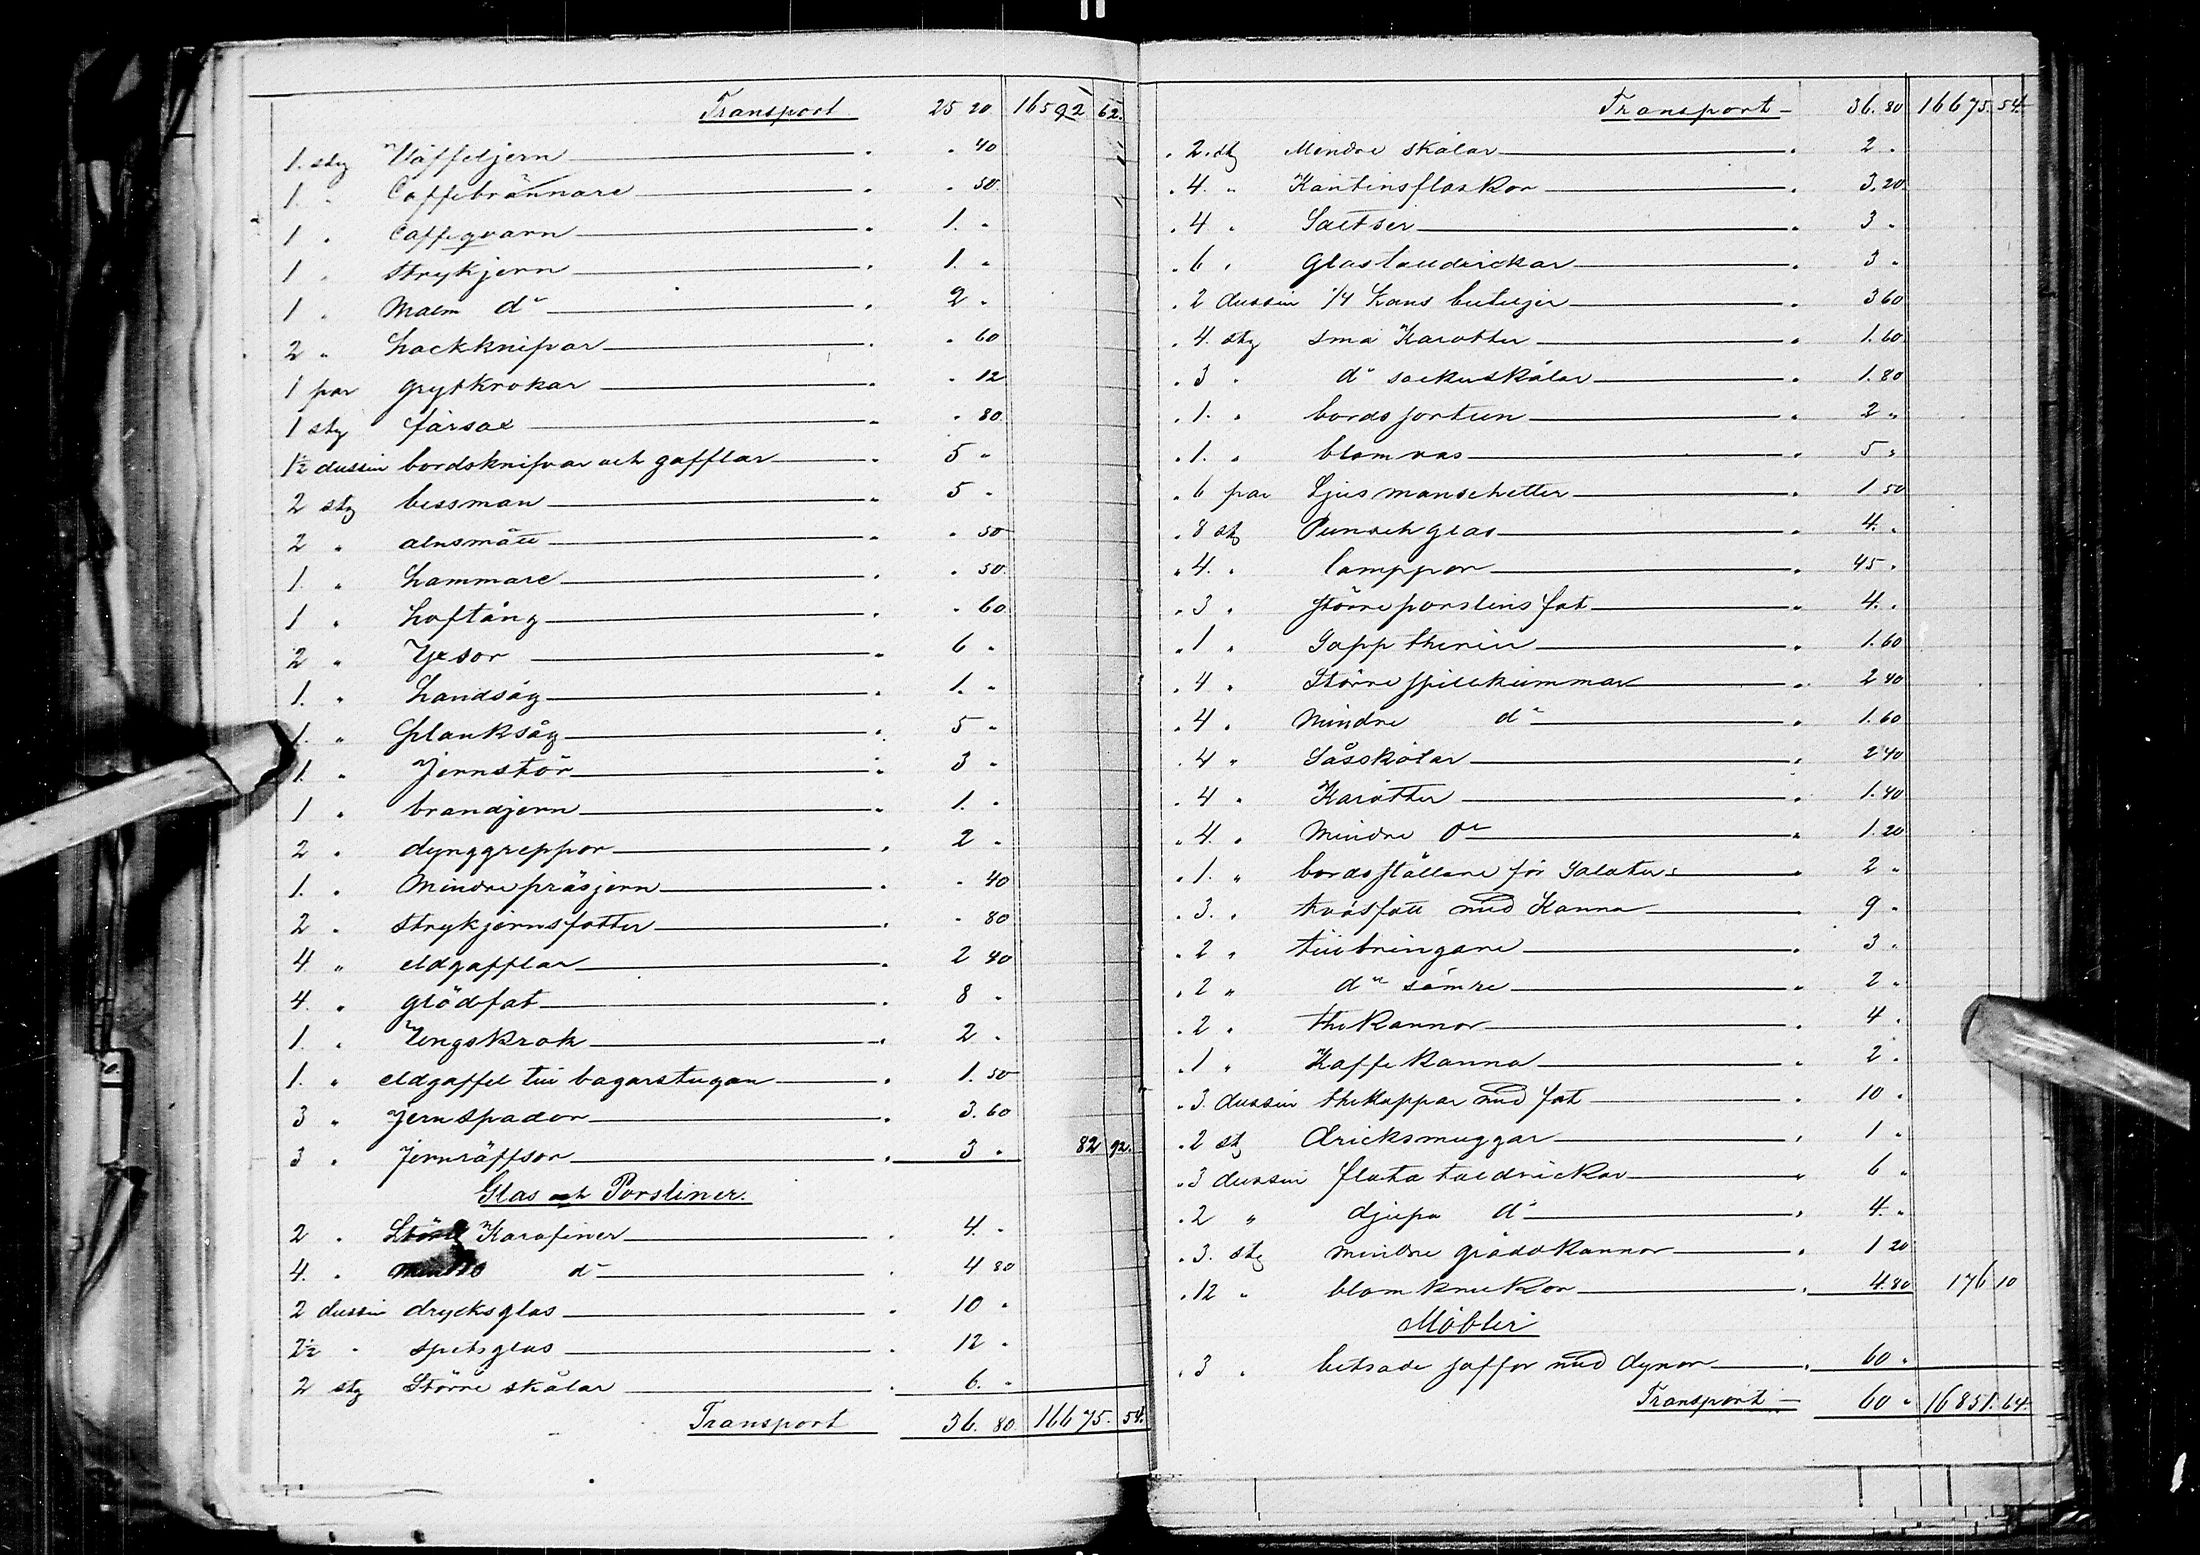 Transport 25 20 16592 62.
1. stg Våffeljern " 40
1. " Caffebrännare " 50.
1 " Caffeqvarn 1. "
1 " strykjern 1. "
1 " Malm d:o 2 "
2 " hackknifvar " 60
1 par grytkrokar " 12
1 stg fårsax " 80.
1½ dussin bordsknifvar och gafflar 5 "
2 stg bessman 5 "
2 " alnsmått " 50
1. " hammare " 50.
1 " hoftång " 60.
2 " Yxor 6 "
1. " handsåg 1. "
1. " planksåg 5 "
1. " Jernstör 3 "
1 " brandjern 1. "
2 " dynggreppor 2 "
1. " Mindre präsjern " 40
2 " strykjernsfotter " 80
4 " eldgafflar 2 40
4. " glödfat 8 "
1. " Ungskrok 2 "
1. " eldgaffel till bagarstugan 1. 50
3 " Jernspador 3. 60
3 " Jernräffsor 3 " 82 92.
Glas och Porsliner.
2 " Större Karafiner 4. "
4. " Mindre d:o 4 80
2 dussin drycksglas 10 "
2½ " spetsglas 12 "
2 stg Större skålar 6. "
Transport 36. 80. 16675. 54.
Transport 36. 80 16675. 54.
" 2. stg Mindre skålar 2 "
" 4. " Kantinsflaskor 3. 20.
" 4 " Saltser 3 "
" 6 " Glastalldrickar 3 "
" 2 dussin 1/4 Kans buteljer 3 60
" 4. stg små Karotter 1. 60
" 3 " d:o sockerskålar 1. 80
" 1. " bords 2 "
" 1. " blomvas 5 "
" 6 par Ljusmanschetter 1 50
" 8 stg Punschglas 4. "
" 4. " lamppor 45 "
" 3 " större porslins fat 4. "
" 1 " Sopp therrin 1. 60
" 4 " Större spillkummar 2 40
" 4 " Mindre d:o 1. 60
" 4 " Såsskålar 2 40
" 4 " Karotter 1. 40
" 4. " Mindre d:o 1. 20
" 1. " bordsställare för Salater 2 "
" 3. " tvåsfatt med Kanna 9 "
" 2 " tillbringare 3 "
" 2 " d:o sämre 2 "
" 2 " thekannor 4 "
" 1 " Kaffekanna 2 "
" 3. dussin thekoppar med fat 10 "
" 2 stg dricksmuggar 1 "
" 3 dussin flata talldrickar 6 "
" 2 " djupa d:o 4. "
" 3. stg mindre gräddkannor 1 20
" 12 " blomkrukor 4. 80 176 10
Möbler
" 3 " betsade soffor med dynor 60 "
Transport 60 " 16851. 64.